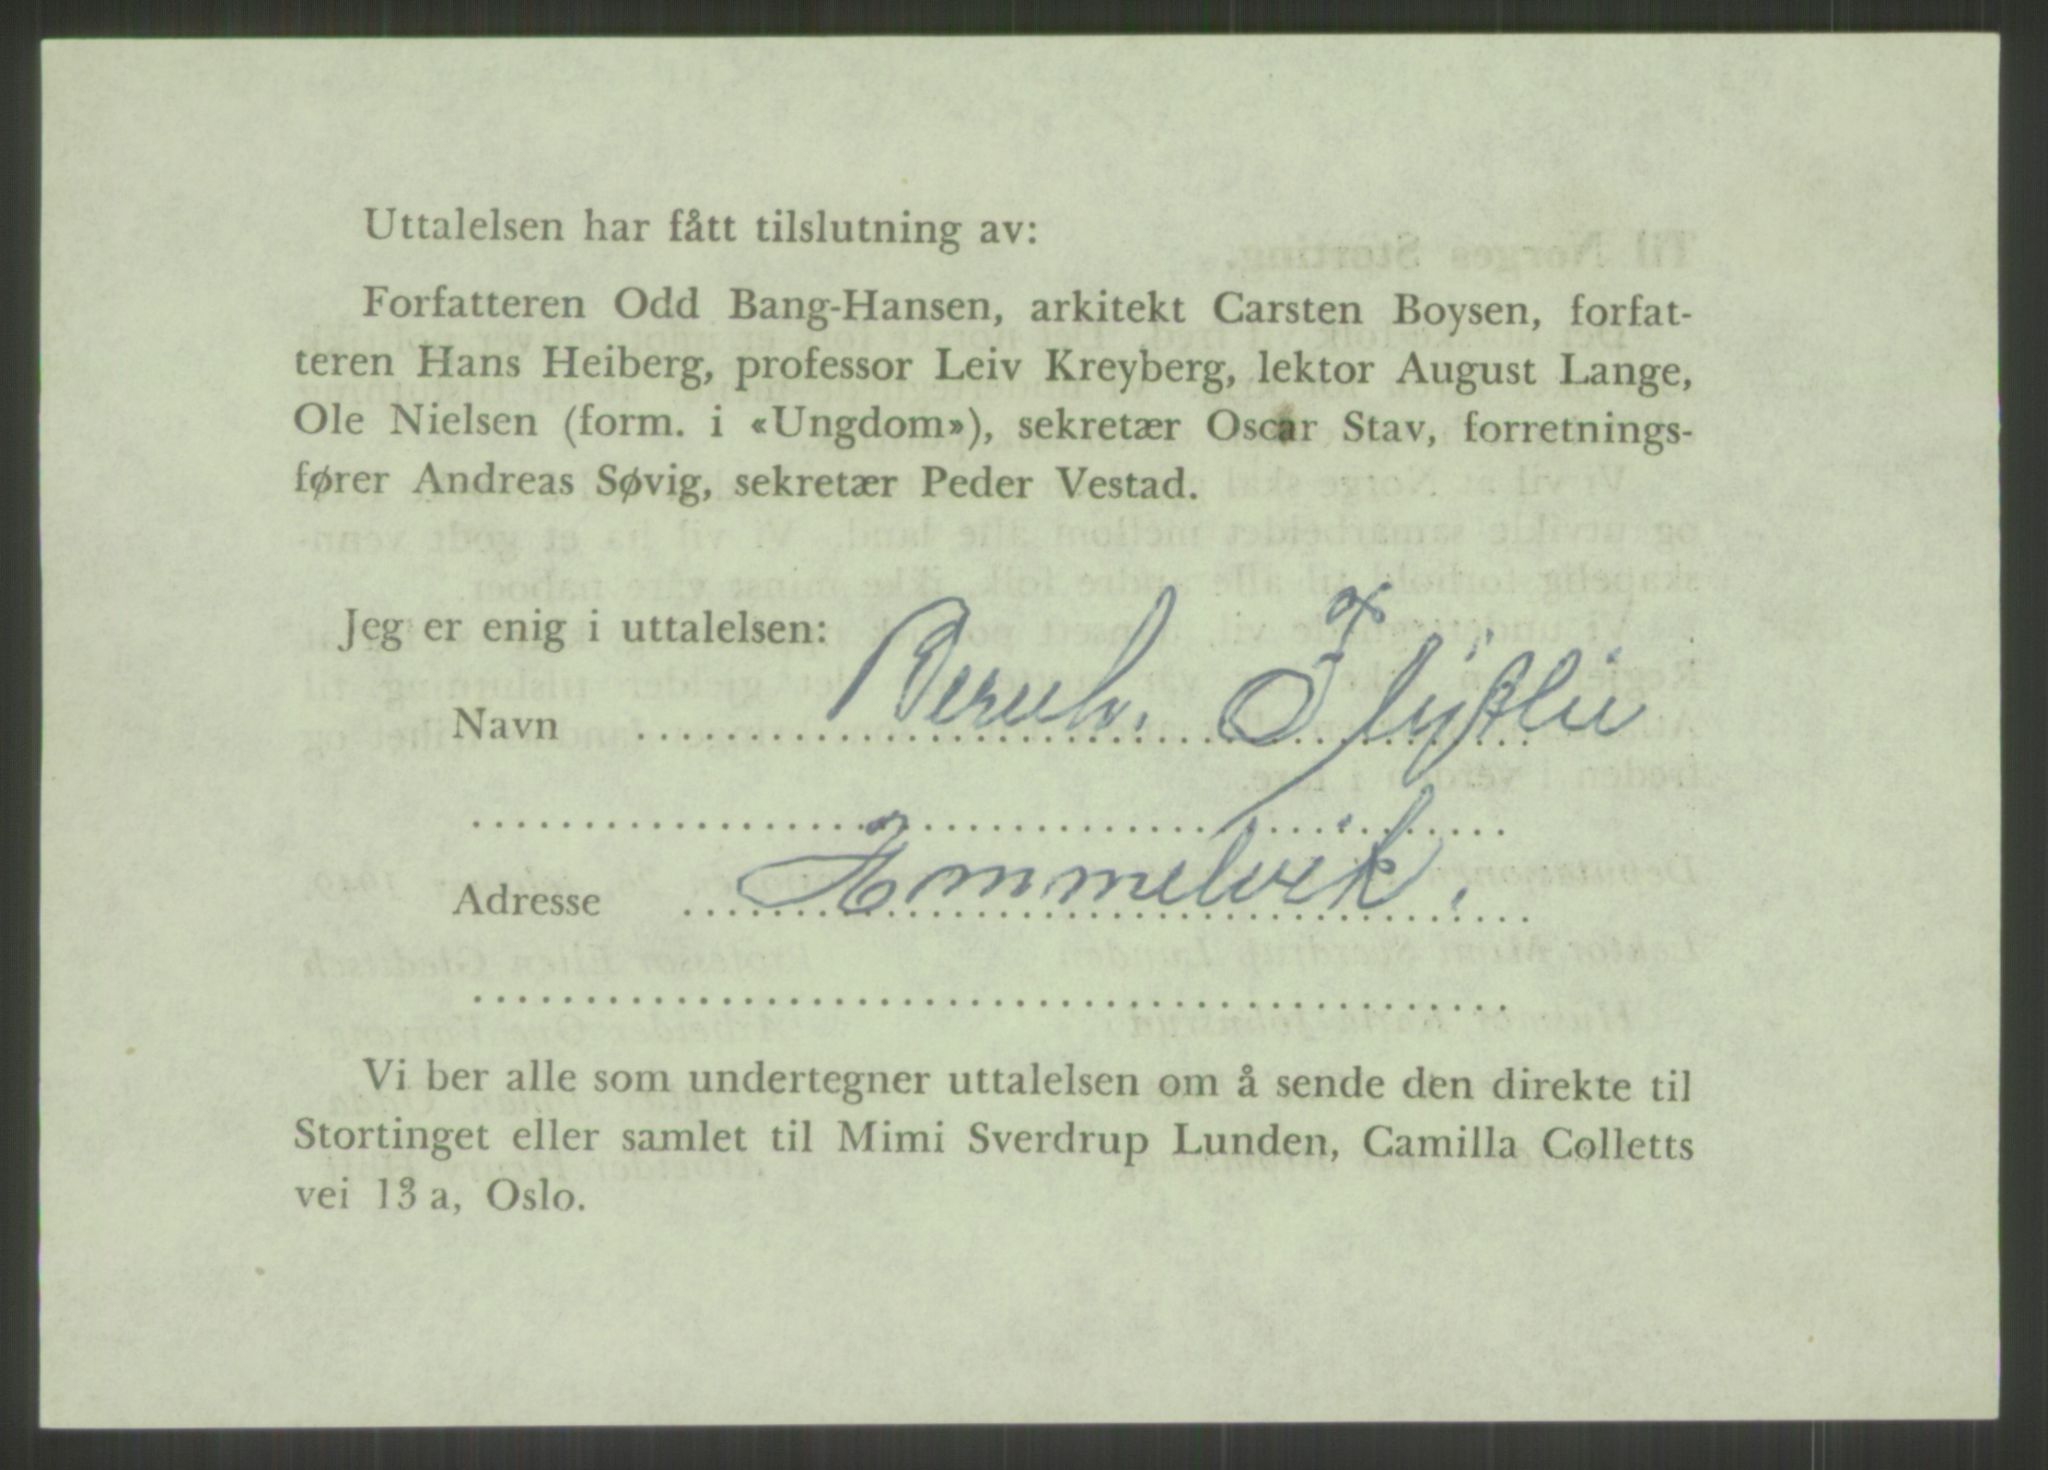 Uttalelsen har fått tilslutning av:
Forfatteren Odd Bang-Hansen, arkitekt Carsten Boysen, forfat-
teren Hans Heiberg, professor Leiv Kreyberg, lektor August Lange,
Ole Nielsen (form. i «Ungdom»), sekretær Oscar Stav, forretnings-
fører Andreas Søvig, sekretær Peder Vestad.
Jeg er enig i uttalelsen:
Navn Bernh.
Adresse Hommelvik.
Vi ber alle som undertegner uttalelsen om å sende den direkte til
Stortinget eller samlet til Mimi Sverdrup Lunden, Camilla Colletts
vei 13 a, Oslo.